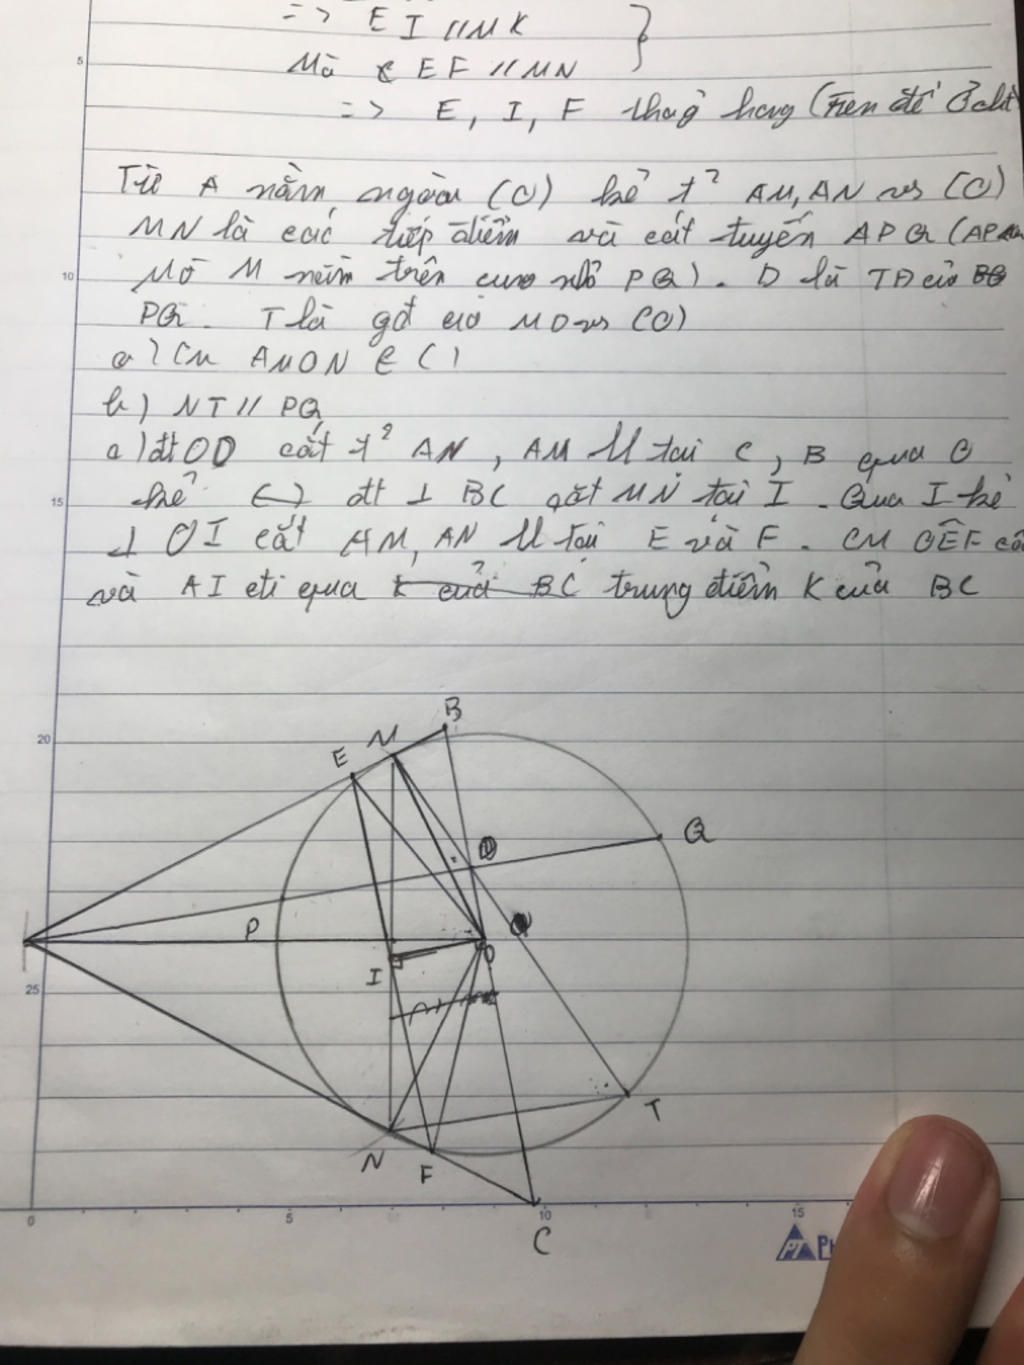 => EI // MK
5
Mà EF // MN
=> E, I, F
Từ A nằm ngoài (O) kẻ t² AM, AN vs (O)
MN là các tiếp điểm và cát tuyến APQ (AP
10
Mà M nằm trên cung nhỏ PQ). D là TĐ của
PQ. T là gđ của MD vs (O)
a) CM AMON ∈ ( )
b) NT // PQ
c) đt OD cắt t² AN, AM ll tại C, B qua O
15
kẻ đt ⊥ BC cắt MN tại I. Qua I kẻ
⊥ OI cắt AM, AN ll tại E và F. CM OEF
và AI đi qua trung điểm K của BC
B
20
M
E
Q
P
I
O
25
T
N
F
0 5 10 15
C
PT